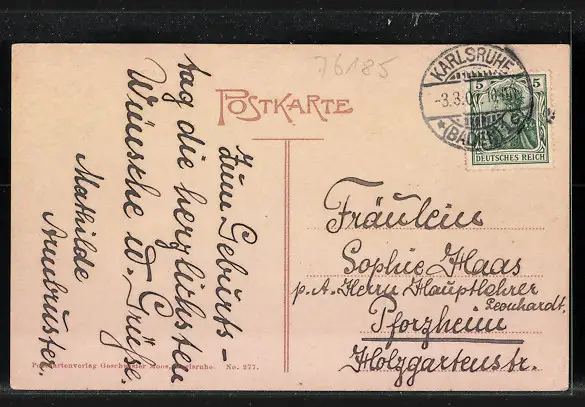 76185
POSTKARTE
KARLSRUHE
-3.3.07.
*(BADEN)
5 5
DEUTSCHES REICH
Zum Geburts-
tag die herzlichsten
Wünsche u. Grüße.
Mathilde
Armbruster.
Fräulein
Sophie Haas
p. A. Herrn Hauptlehrer
Leonhardt,
Pforzheim
Holzgartenstr.
Postkartenverlag Geschwister Moos, Karlsruhe. No. 277.